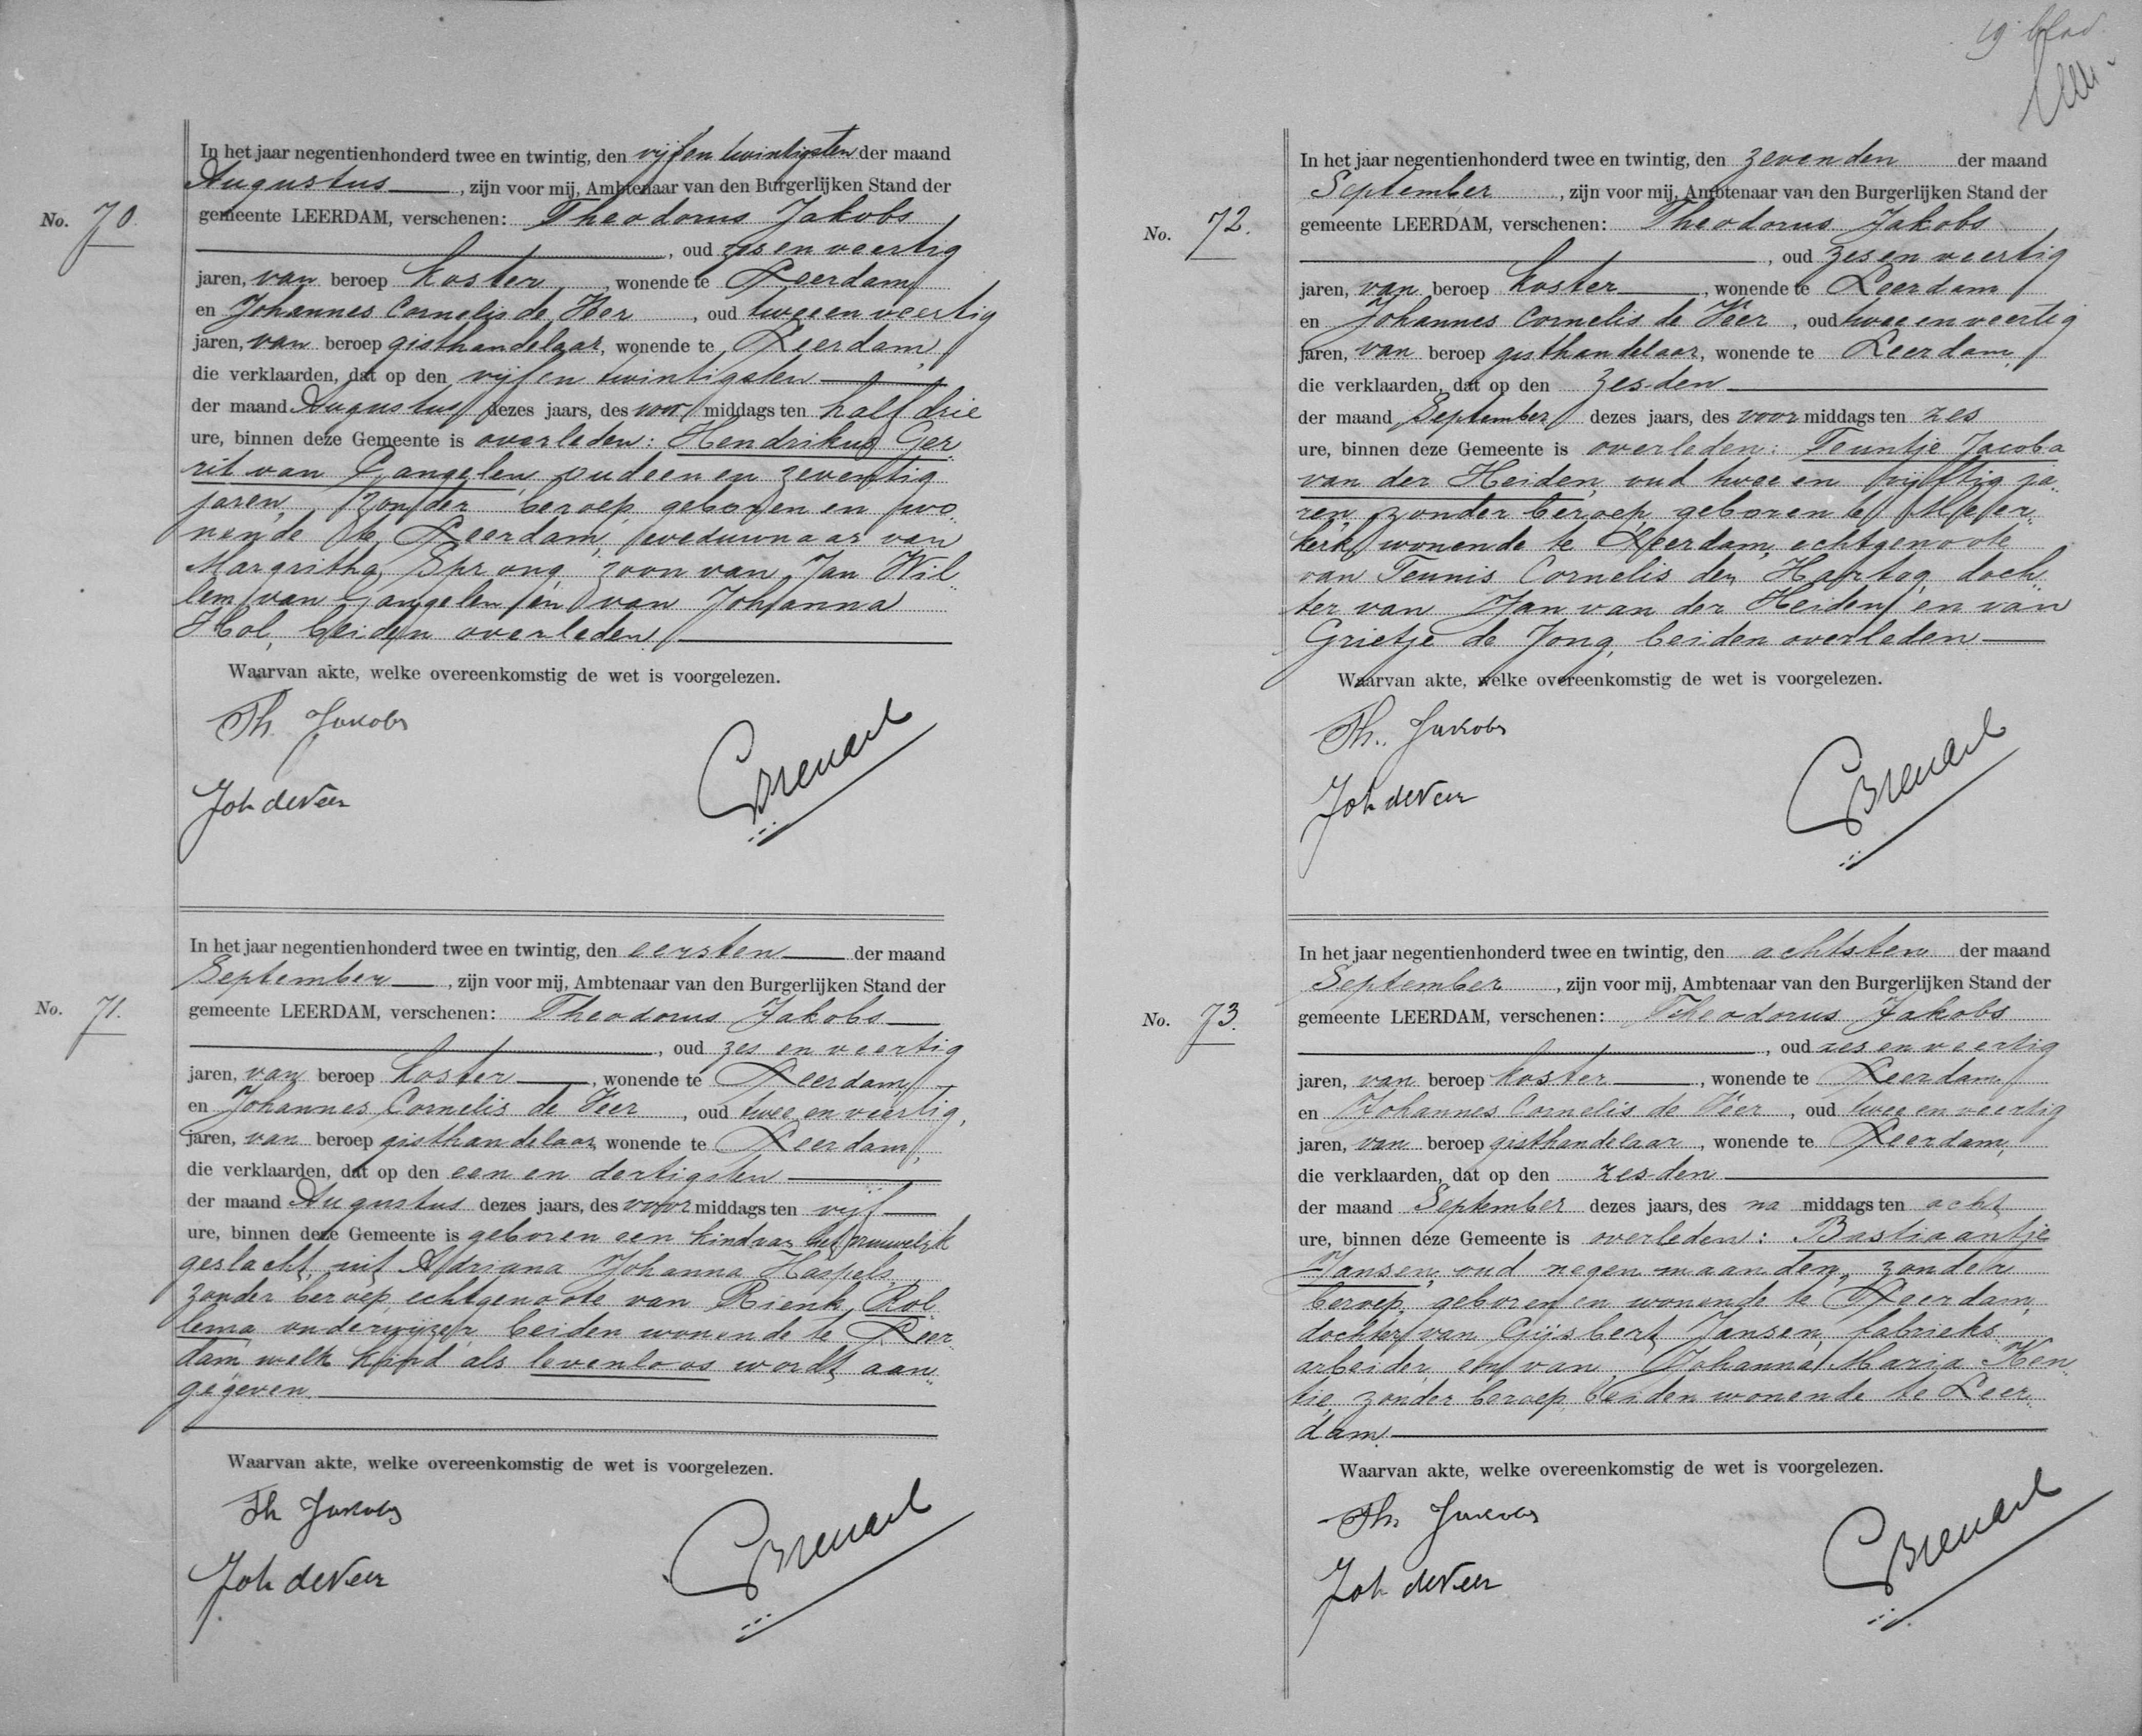 No. 70.
In het jaar negentienhonderd twee en twintig, den vijfentwintigsten der maand
Augustus, zijn voor mij, Ambtenaar van den Burgerlijken Stand der
gemeente LEERDAM, verschenen: Theodorus Jakobs
, oud zes en veertig
jaren, van beroep koster, wonende te Leerdam,
en Johannes Cornelis de Veer, oud twee en veertig
jaren, van beroep gisthandelaar, wonende te Leerdam,
die verklaarden, dat op den vijf en twintigsten
der maand Augustus dezes jaars, des voor middags ten half drie
ure, binnen deze Gemeente is overleden: Hendrikus Ger
rit van Gangelen, oud een en zeventig
jaren, zonder beroep, geboren en wo
nende te Leerdam, weduwnaar van
Margritha Sprong, zoon van Jan Wil
lem van Gangelen en van Johanna
Hol, beiden overleden.
Waarvan akte, welke overeenkomstig de wet is voorgelezen.
Th. Jakobs
Joh de Veer
No. 71.
In het jaar negentienhonderd twee en twintig, den eersten der maand
September, zijn voor mij, Ambtenaar van den Burgerlijken Stand der
gemeente LEERDAM, verschenen: Theodorus Jakobs
, oud zes en veertig
jaren, van beroep koster, wonende te Leerdam,
en Johannes Cornelis de Veer, oud twee en veertig,
jaren, van beroep gisthandelaar, wonende te Leerdam,
die verklaarden, dat op den een en dertigsten
der maand Augustus dezes jaars, des voor middags ten vijf
ure, binnen deze Gemeente is geboren een kind van het vrouwelijk
geslacht, uit Adriana Johanna Haspels,
zonder beroep, echtgenoote van Rienk Rol
lema, onderwijzer, beiden wonende te Leer
dam, welk kind als levenloos wordt aan
gegeven.
Waarvan akte, welke overeenkomstig de wet is voorgelezen.
Th Jakobs
Joh de Veer
19 blad.
No. 72.
In het jaar negentienhonderd twee en twintig, den zevenden der maand
September, zijn voor mij, Ambtenaar van den Burgerlijken Stand der
gemeente LEERDAM, verschenen: Theodorus Jakobs
, oud zes en veertig
jaren, van beroep koster, wonende te Leerdam
en Johannes Cornelis de Veer, oud twee en veertig
jaren, van beroep gisthandelaar, wonende te Leerdam,
die verklaarden, dat op den zesden
der maand September dezes jaars, des voor middags ten zes
ure, binnen deze Gemeente is overleden: Teuntje Jacoba
van der Heiden, oud twee en vijftig ja
ren, zonder beroep, geboren te Meer
kerk, wonende te Leerdam, echtgenoote
van Teunis Cornelis den Hartog, doch
ter van Jan van der Heiden en van
Grietje de Jong, beiden overleden
Waarvan akte, welke overeenkomstig de wet is voorgelezen.
Th. Jakobs
Joh de Veer
No. 73.
In het jaar negentienhonderd twee en twintig, den achtsten der maand
September, zijn voor mij, Ambtenaar van den Burgerlijken Stand der
gemeente LEERDAM, verschenen: Theodorus Jakobs
, oud zes en veertig
jaren, van beroep koster, wonende te Leerdam,
en Johannes Cornelis de Veer, oud twee en veertig
jaren, van beroep gisthandelaar, wonende te Leerdam,
die verklaarden, dat op den zesden
der maand September dezes jaars, des na middags ten acht
ure, binnen deze Gemeente is overleden: Bastiaantje
Jansen, oud negen maanden, zonder
beroep, geboren en wonende te Leerdam,
dochter van Gijsbert Jansen, fabrieks
arbeider, en van Johanna Maria Ken
tie, zonder beroep, beiden wonende te Leer
dam.
Waarvan akte, welke overeenkomstig de wet is voorgelezen.
Th. Jakobs
Joh de Veer